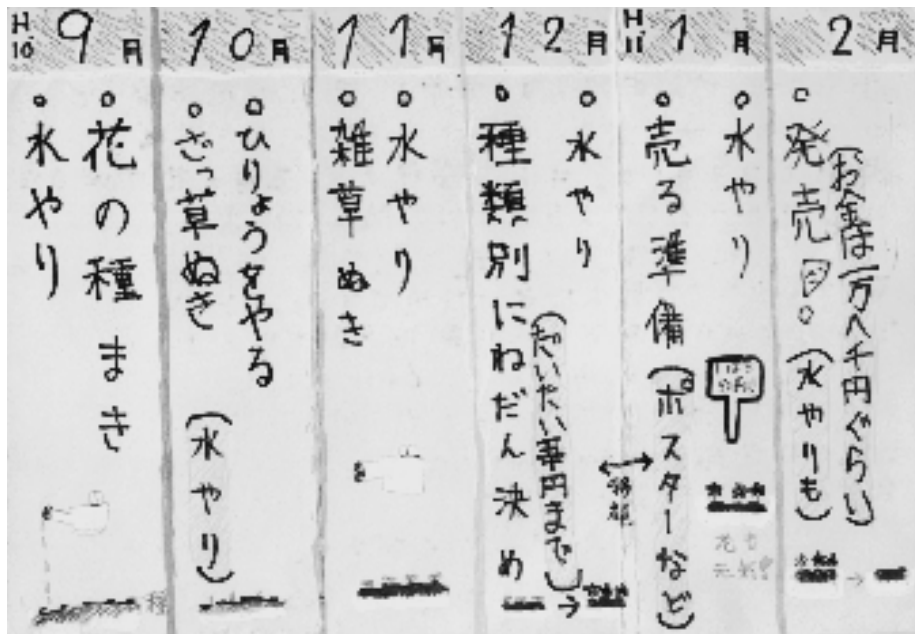 H.10 9月
○花の種まき
○水やり
10月
○ひりょうをやる
○ざっ草ぬき (水やり)
11月
○水やり
○雑草ぬき
12月
○水やり
○種類別にねだん決め
(だいたい 円まで)
H11 1月
○水やり
○売る準備(ポスターなど)
花も
元気!
2月
(お金は一万八千円ぐらい)
○発売日。(水やりも)